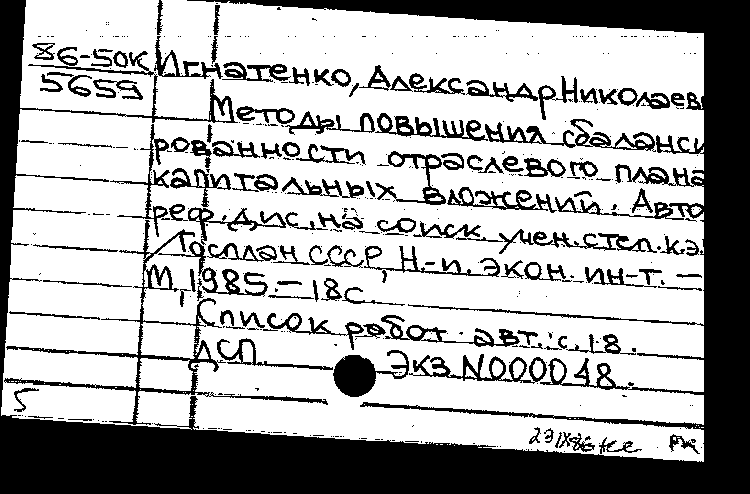 86-50к Игнатенко, Александр Николаев
5659
Методы повышения сбаланси
рованности отраслевого плана
капитальных вложений: Авто
реф. дис. на соиск. учен. степ. к.э.
/Госплан СССР, Н.-и. экон. ин-т. —
М., 1985. — 18 с.
Список работ авт.: с. 18.
ДСП. Экз. N000048.
5